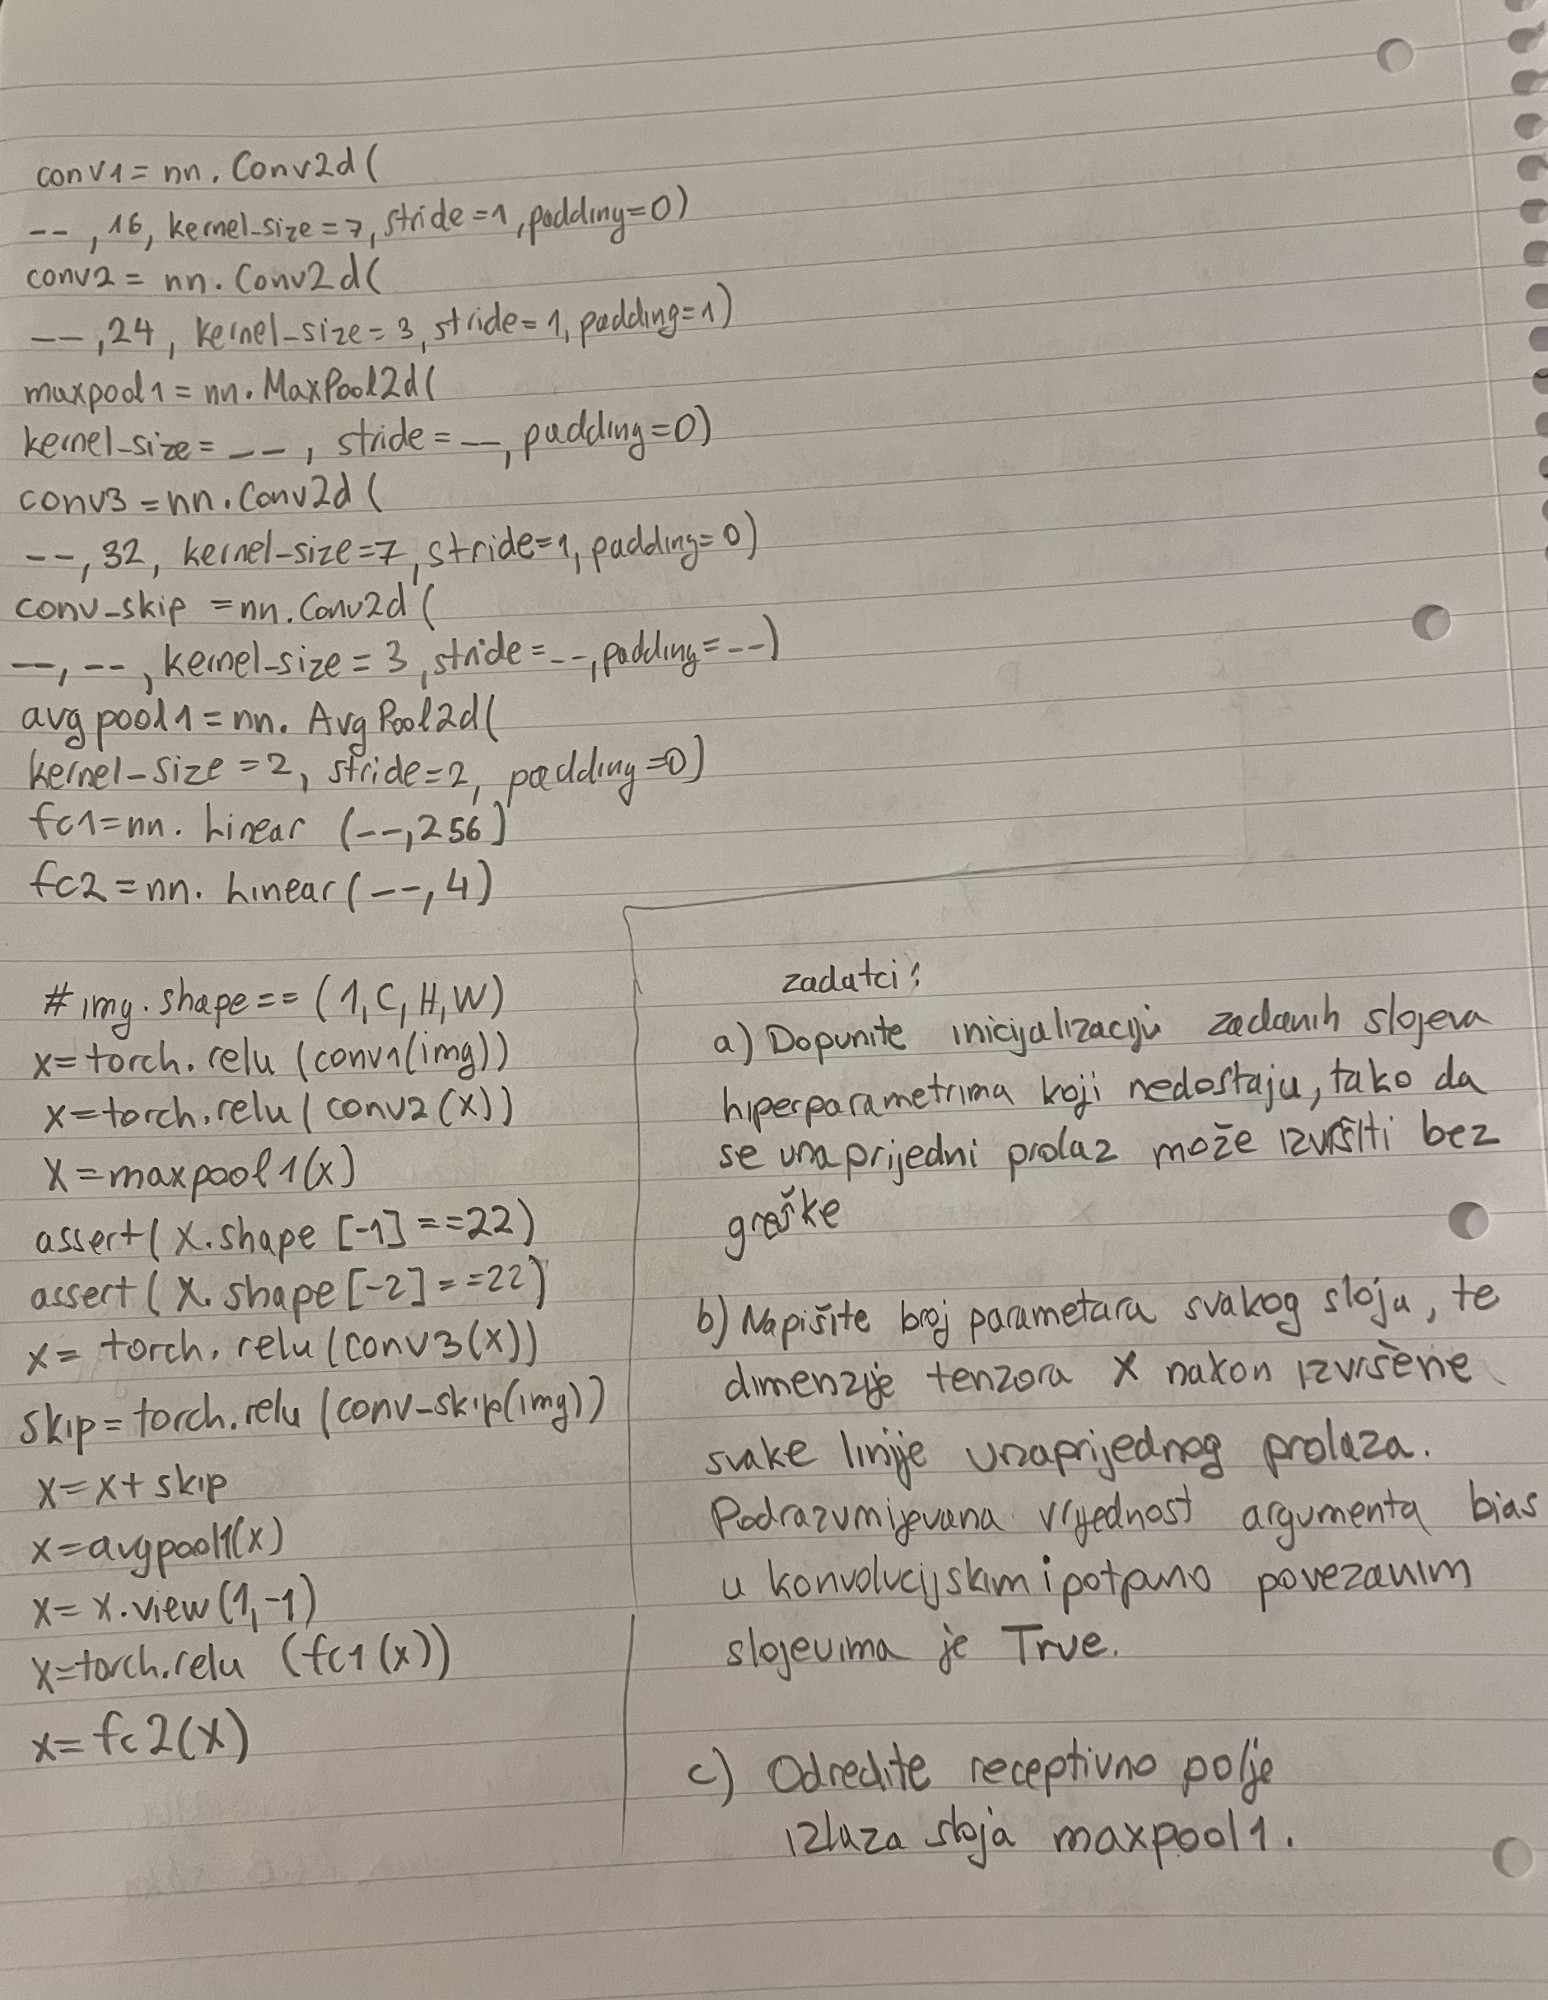 conv1 = nn. Conv2d (
-- , 16, kernel-size = 7, stride = 1 , padding = 0)
conv2 = nn. Conv2d (
-- , 24, kernel-size = 3, stride = 1, padding = 1)
maxpool1 = nn. MaxPool2d (
kernel-size = -- , stride = --, padding = 0)
conv3 = nn. Conv2d (
-- , 32, kernel-size = 7, stride = 1, padding = 0)
conv-skip = nn. Conv2d (
--, -- , kernel-size = 3, stride = --, padding = --)
avgpool1 = nn. AvgPool2d (
kernel-size = 2, stride = 2, padding = 0)
fc1 = nn. Linear (--, 256)
fc2 = nn. Linear (--, 4)
# img. shape == (1, C, H, W)
x = torch. relu (conv1(img))
x = torch. relu ( conv2 (x))
x = maxpool1(x)
assert ( x. shape [-1] == 22)
assert ( x. shape [-2] == 22)
x = torch. relu (conv3(x))
skip = torch. relu (conv-skip(img))
x = x + skip
x = avgpool1(x)
x = x. view (1, -1)
x = torch. relu (fc1 (x))
x = fc2(x)
zadatci:
a) Dopunite inicijalizaciju zadanih slojeva
hiperparametrima koji nedostaju, tako da
se unaprijedni prolaz može izvršiti bez
greške
b) Napišite broj parametara svakog sloja, te
dimenzije tenzora x nakon izvršene
svake linije unaprijednog prolaza.
Podrazumijevana vrijednost argumenta bias
u konvolucijskim i potpuno povezanim
slojevima je True.
c) Odredite receptivno polje
izlaza sloja maxpool1.